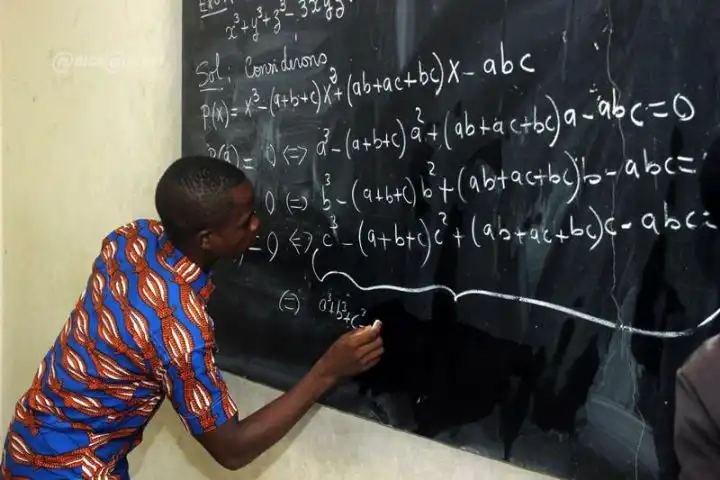 x³+y³+z³-3xyz
Sol: Considerons
P(x)= x³-(a+b+c)x²+(ab+ac+bc)x-abc
P(a)= 0 <=> a³-(a+b+c)a²+(ab+ac+bc)a-abc=0
0 <=> b³-(a+b+c)b²+(ab+ac+bc)b-abc=
=0 <=> c³-(a+b+c)c²+(ab+ac+bc)c-abc=
(=) a³+b³+c³